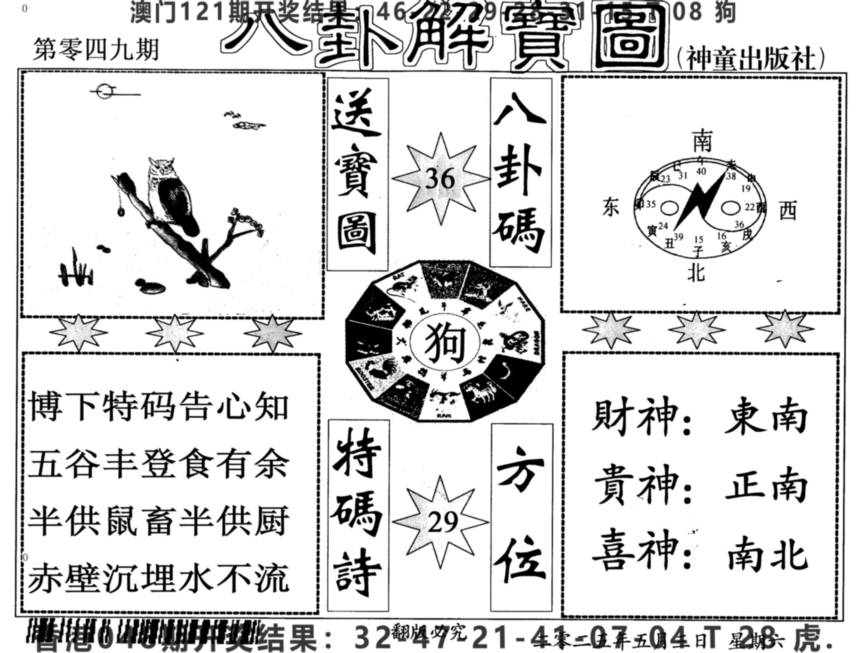 澳门121期开奖结果:46
08 狗
八卦解寶圖
第零四九期
(神童出版社)
送寶圖
36
八卦碼
南
东
西
北
巳
午
未
申
戌
亥
子
丑
寅
31
40
38
19
22
36
16
15
39
24
35
23
狗
博下特码告心知
五谷丰登食有余
半供鼠畜半供厨
赤壁沉埋水不流
特碼詩
29
方位
財神：東南
貴神：正南
喜神：南北
翻版必究
香港048期开奖结果：32-47-21-41-07-04 T 28 虎.
星期六